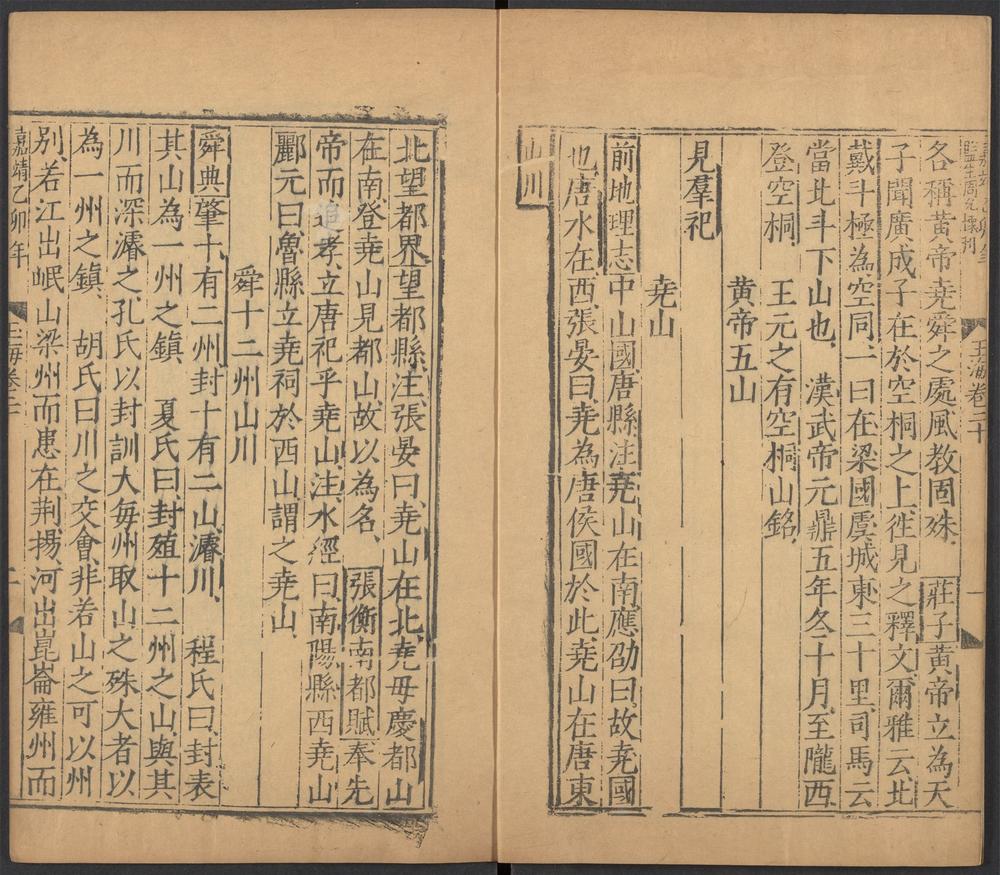 玉海卷二十
一
監生周允懷刊
各稱黃帝堯舜之處風教固殊 莊子黃帝立為天
子聞廣成子在於空桐之上往見之釋文爾雅云北
戴斗極為空同一曰在梁國虞城東三十里司馬云
當北斗下山也 漢武帝元鼎五年冬十月至隴西
登空桐 王元之有空桐山銘
黃帝五山
見羣祀
堯山
前地理志中山國唐縣注堯山在南應劭曰故堯國
也唐水在西張晏曰堯為唐侯國於此堯山在唐東
山川
北望都界望都縣注張晏曰堯山在北堯母慶都山
在南登堯山見都山故以為名 張衡南都賦奉先
帝而追孝立唐祀乎堯山注水經曰南陽縣西堯山
酈元曰魯縣立堯祠於西山謂之堯山
舜十二州山川
舜典肇十有二州封十有二山濬川 程氏曰封表
其山為一州之鎮 夏氏曰封殖十二州之山與其
川而深濬之孔氏以封訓大每州取山之殊大者以
為一州之鎮 胡氏曰川之交會非若山之可以州
別若江出岷山梁州而患在荆揚河出崑崙雍州而
嘉靖乙卯年
玉海卷二十
二